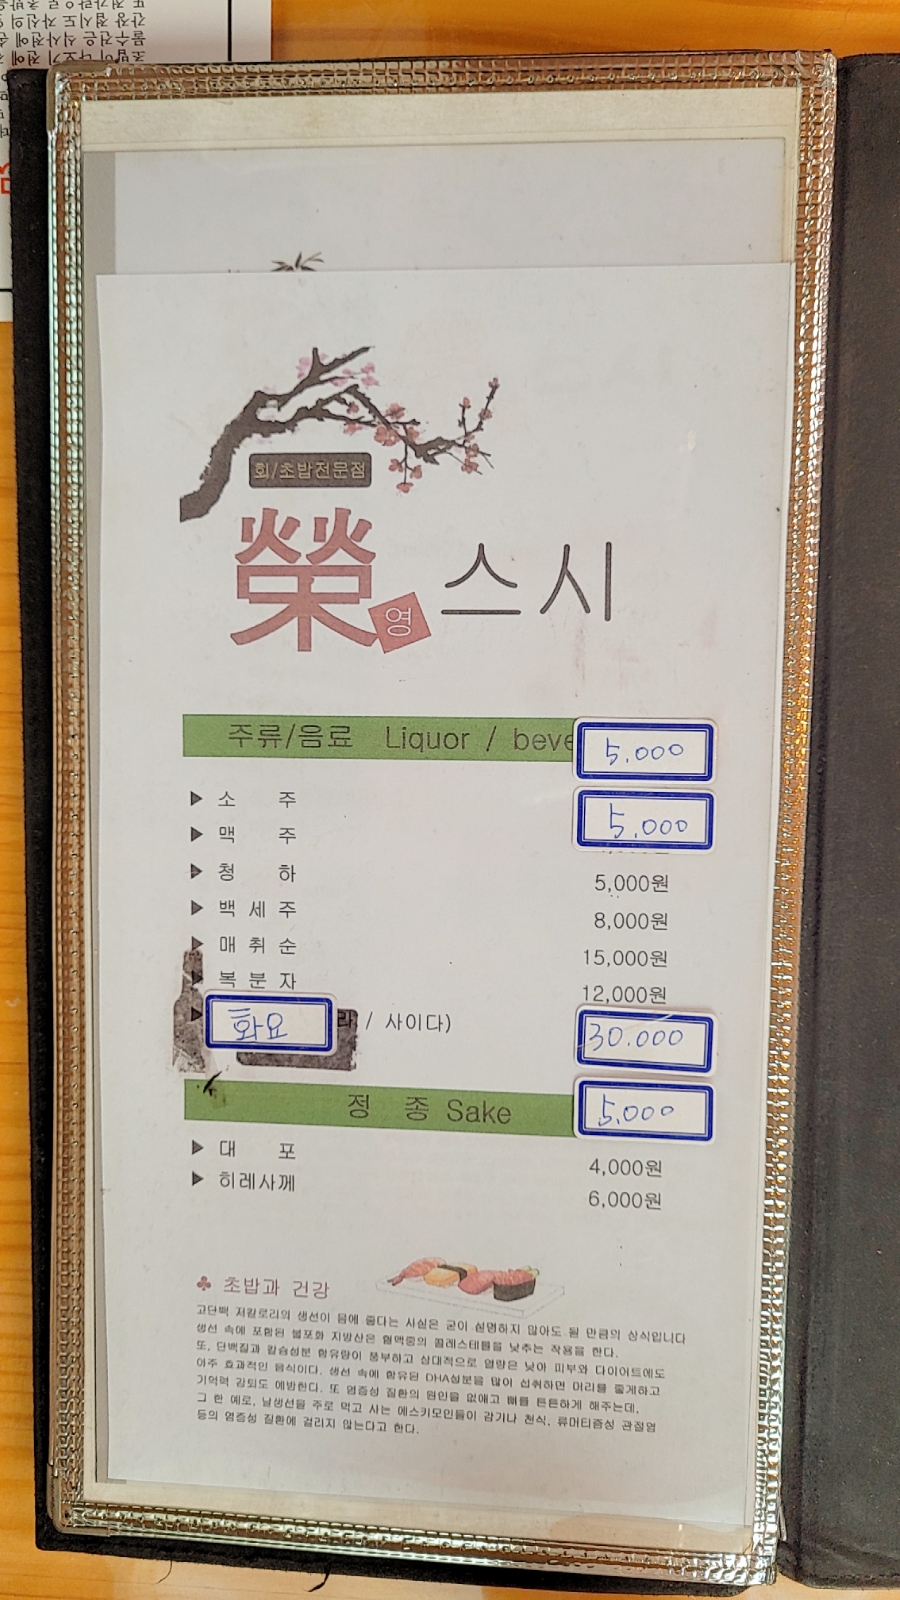 회/초밥전문점
榮 영 스시
주류/음료 Liquor / beve
5.000
소 주
5.000
맥 주
청 하 5,000원
백 세 주 8,000원
매 취 순 15,000원
복 분 자 12,000원
화요 라 / 사이다) 30.000
정 종 Sake 5,000
대 포 4,000원
히레사께 6,000원
♣ 초밥과 건강
고단백 저칼로리의 생선이 몸에 좋다는 사실은 굳이 설명하지 않아도 될 만큼의 상식입니다
생선 속에 포함된 불포화 지방산은 혈액중의 콜레스테롤을 낮추는 작용을 한다.
또, 단백질과 칼슘성분 함유량이 풍부하고 상대적으로 열량은 낮아 피부와 다이어트에도
아주 효과적인 음식이다. 생선 속에 함유된 DHA성분을 많이 섭취하면 머리를 좋게하고
기억력 감퇴도 예방한다. 또 염증성 질환의 원인을 없애고 뼈를 튼튼하게 해주는데,
그 한 예로, 날생선을 주로 먹고 사는 에스키모인들이 감기나 천식, 류머티즘성 관절염
등의 염증성 질환에 걸리지 않는다고 한다.